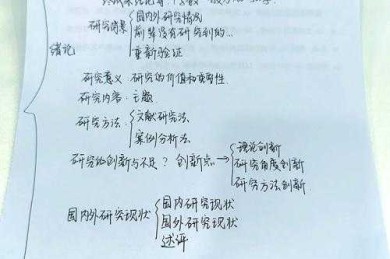 国内外研究情况
研究背景 前辈没有研究到的...
重新验证
绪论
研究意义:研究的价值和重要性
研究内容:主题
研究方法 文献研究法
案例分析法
研究的创新与不足?创新点→ 理论创新
研究角度创新
研究方法创新
国内外研究现状 国内研究现状
国外研究现状
述评